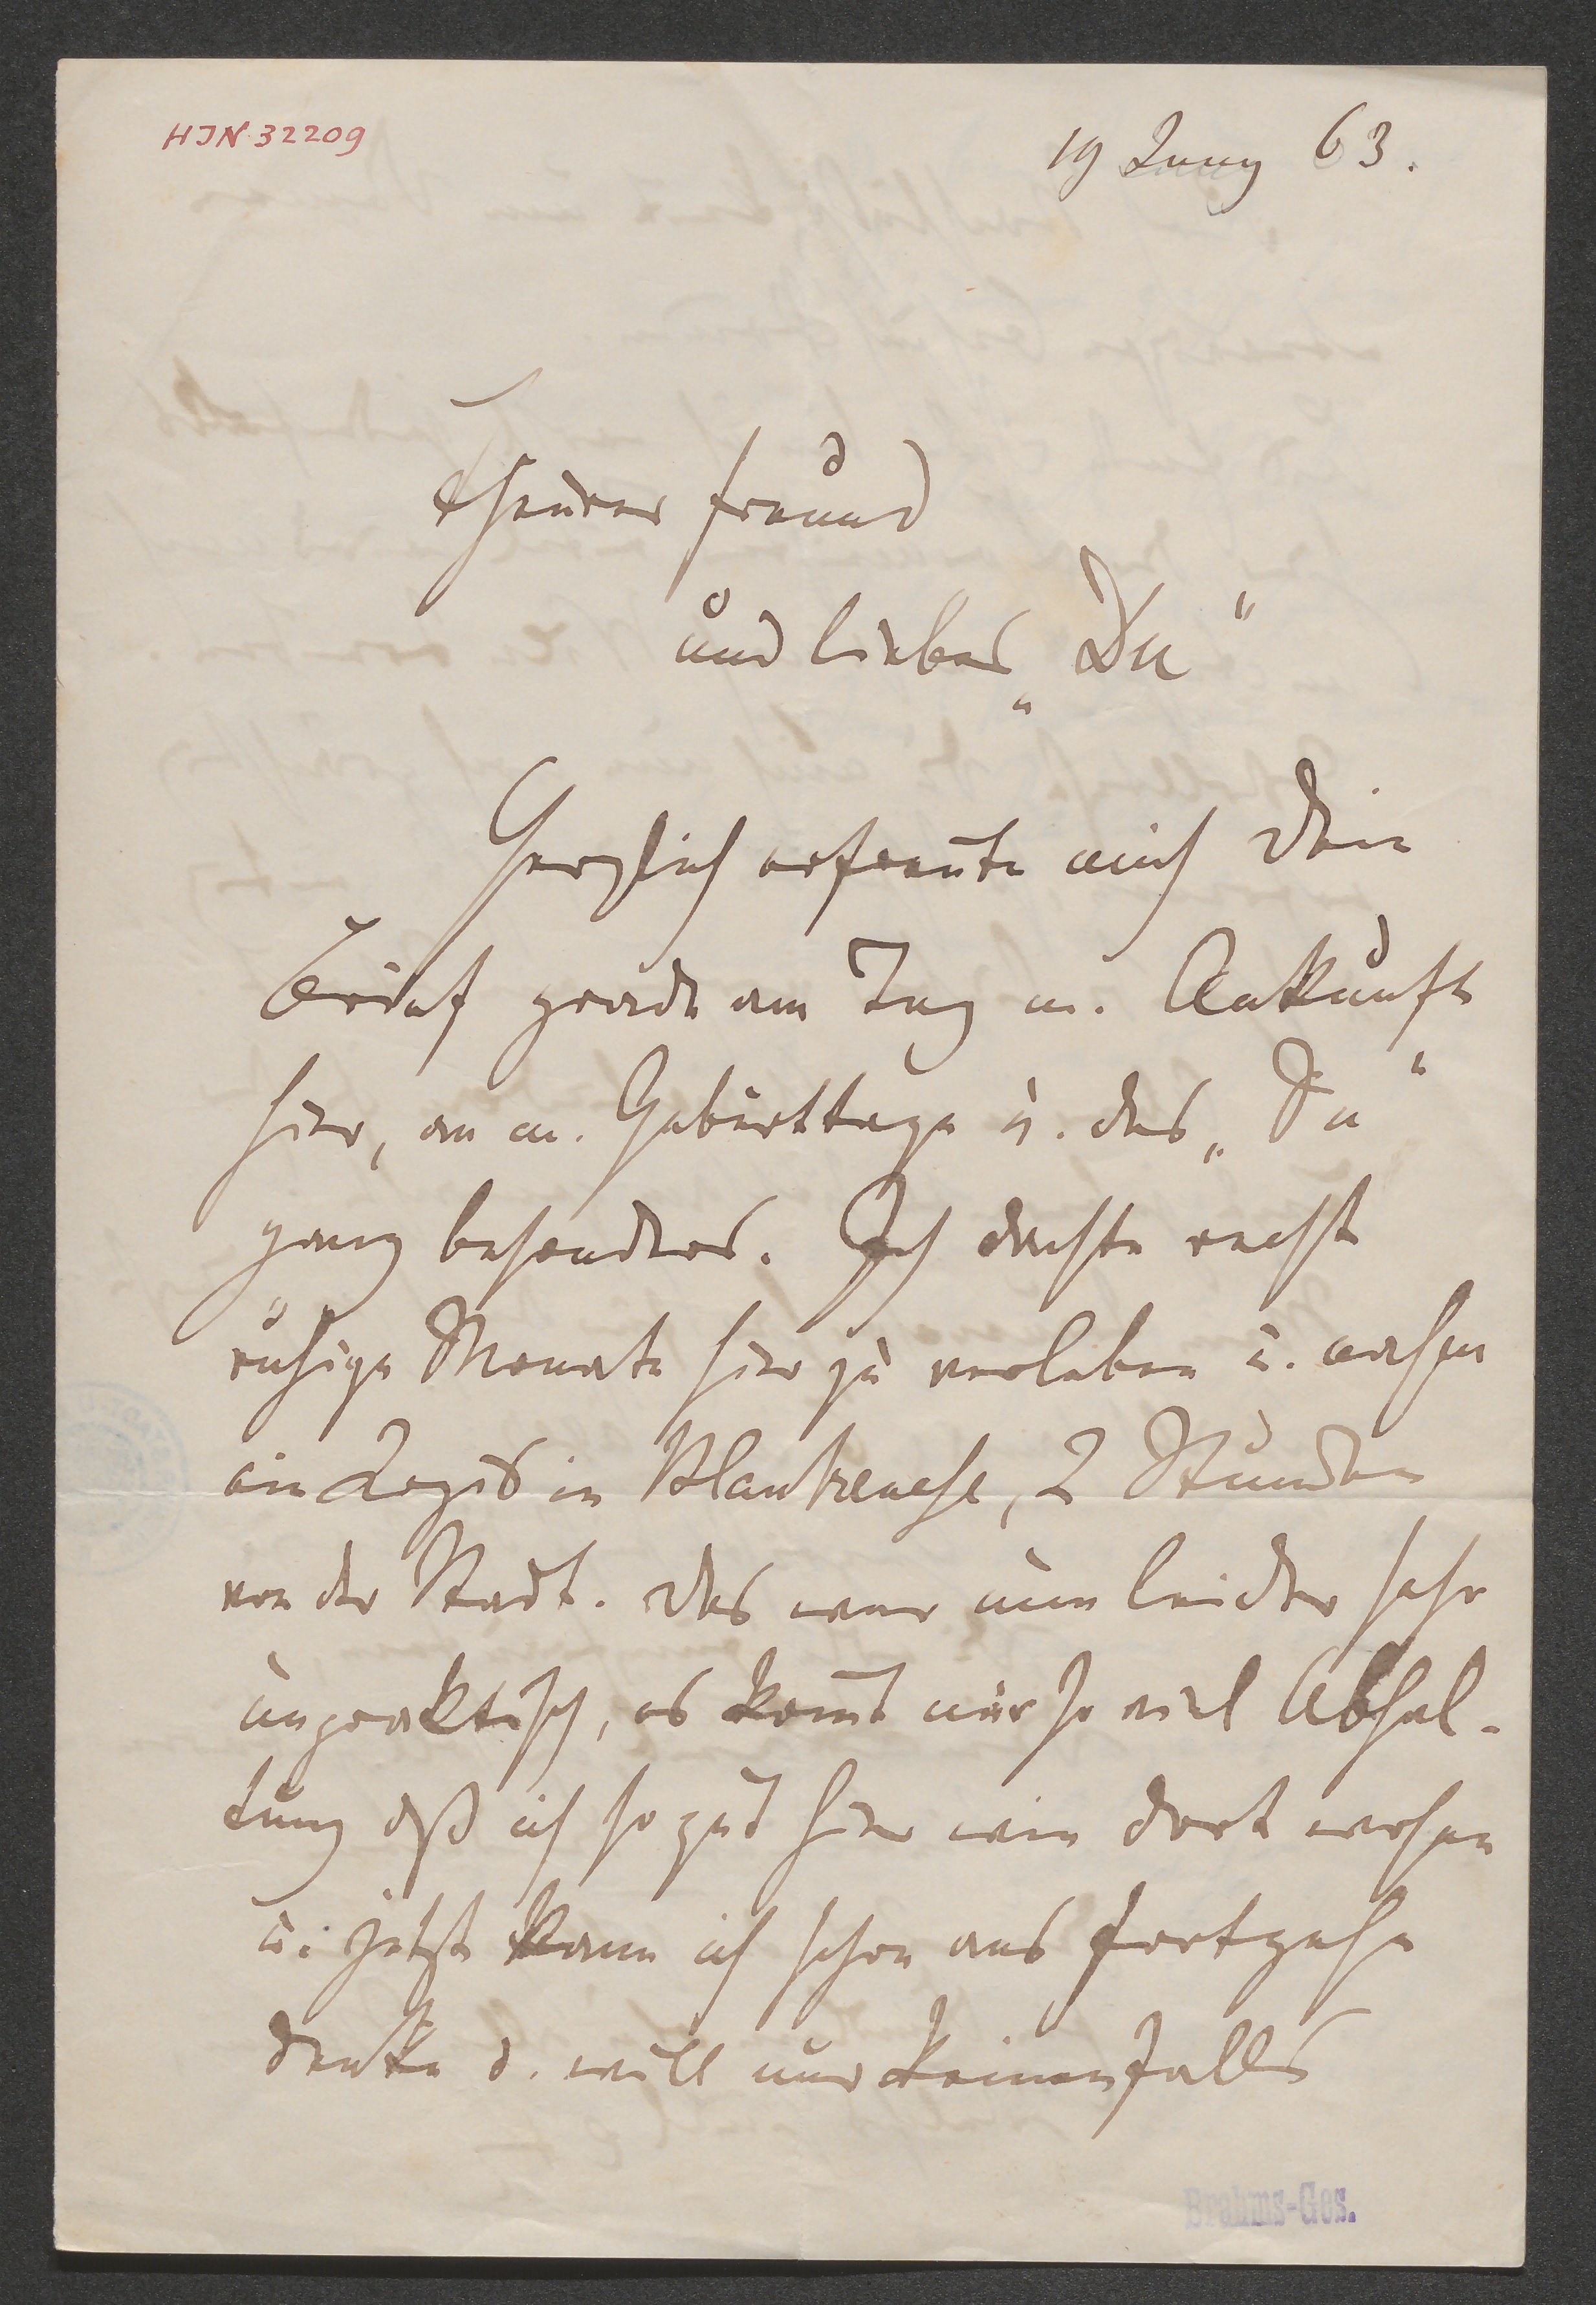 HIN 32209
19 Juny 63.
Theurer Freund
und liebes „Du“
Herzlich erfreute mich Dein
Brief grade am Tag m. Ankunft
hier, an m. Geburtstage u. das „Du“
ganz besonders. Ich dachte recht
ruhige Monate hier zu verleben u. nahm
ein Logis in Blankenese, 2 Stunden
von der Stadt. Das war nun leider sehr
unpraktisch, es kom̄t mir so viel Abhal-
tung daß ich so gut hier wie dort wohne
u. jetzt kann ich schon ans Fortgehn
denke u. will nur keinenfalls
Brahms-Ges.